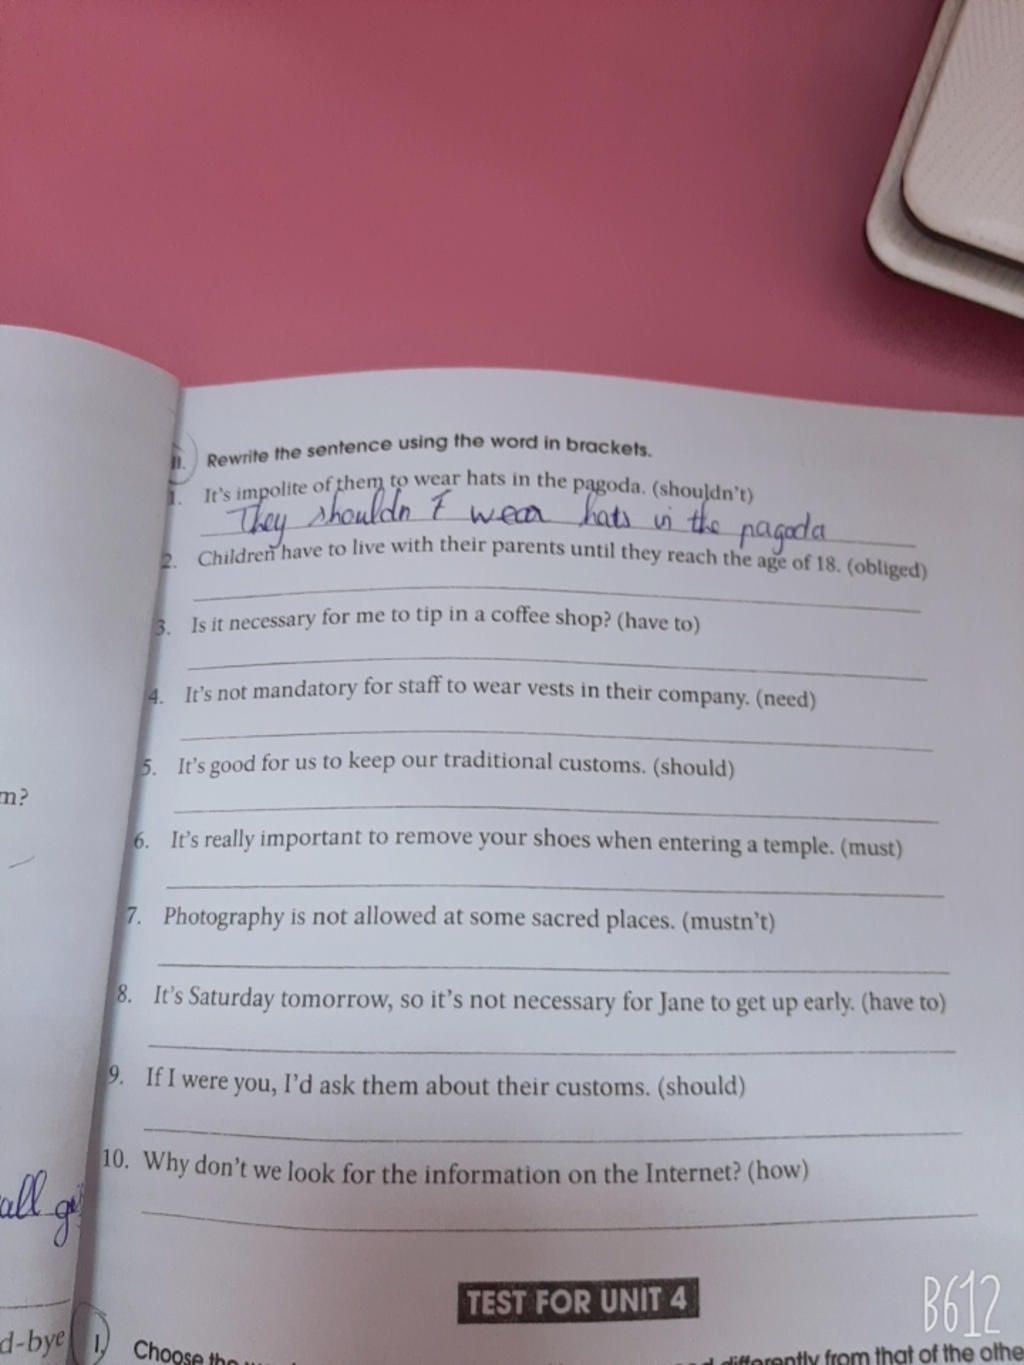 II. Rewrite the sentence using the word in brackets.
1. It's impolite of them to wear hats in the pagoda. (shouldn't)
They shouldn't wear hats in the pagoda
2. Children have to live with their parents until they reach the age of 18. (obliged)
3. Is it necessary for me to tip in a coffee shop? (have to)
4. It's not mandatory for staff to wear vests in their company. (need)
5. It's good for us to keep our traditional customs. (should)
m?
6. It's really important to remove your shoes when entering a temple. (must)
7. Photography is not allowed at some sacred places. (mustn't)
8. It's Saturday tomorrow, so it's not necessary for Jane to get up early. (have to)
9. If I were you, I'd ask them about their customs. (should)
10. Why don't we look for the information on the Internet? (how)
all
TEST FOR UNIT 4
B612
d-bye
I, Choose the differently from that of the othe